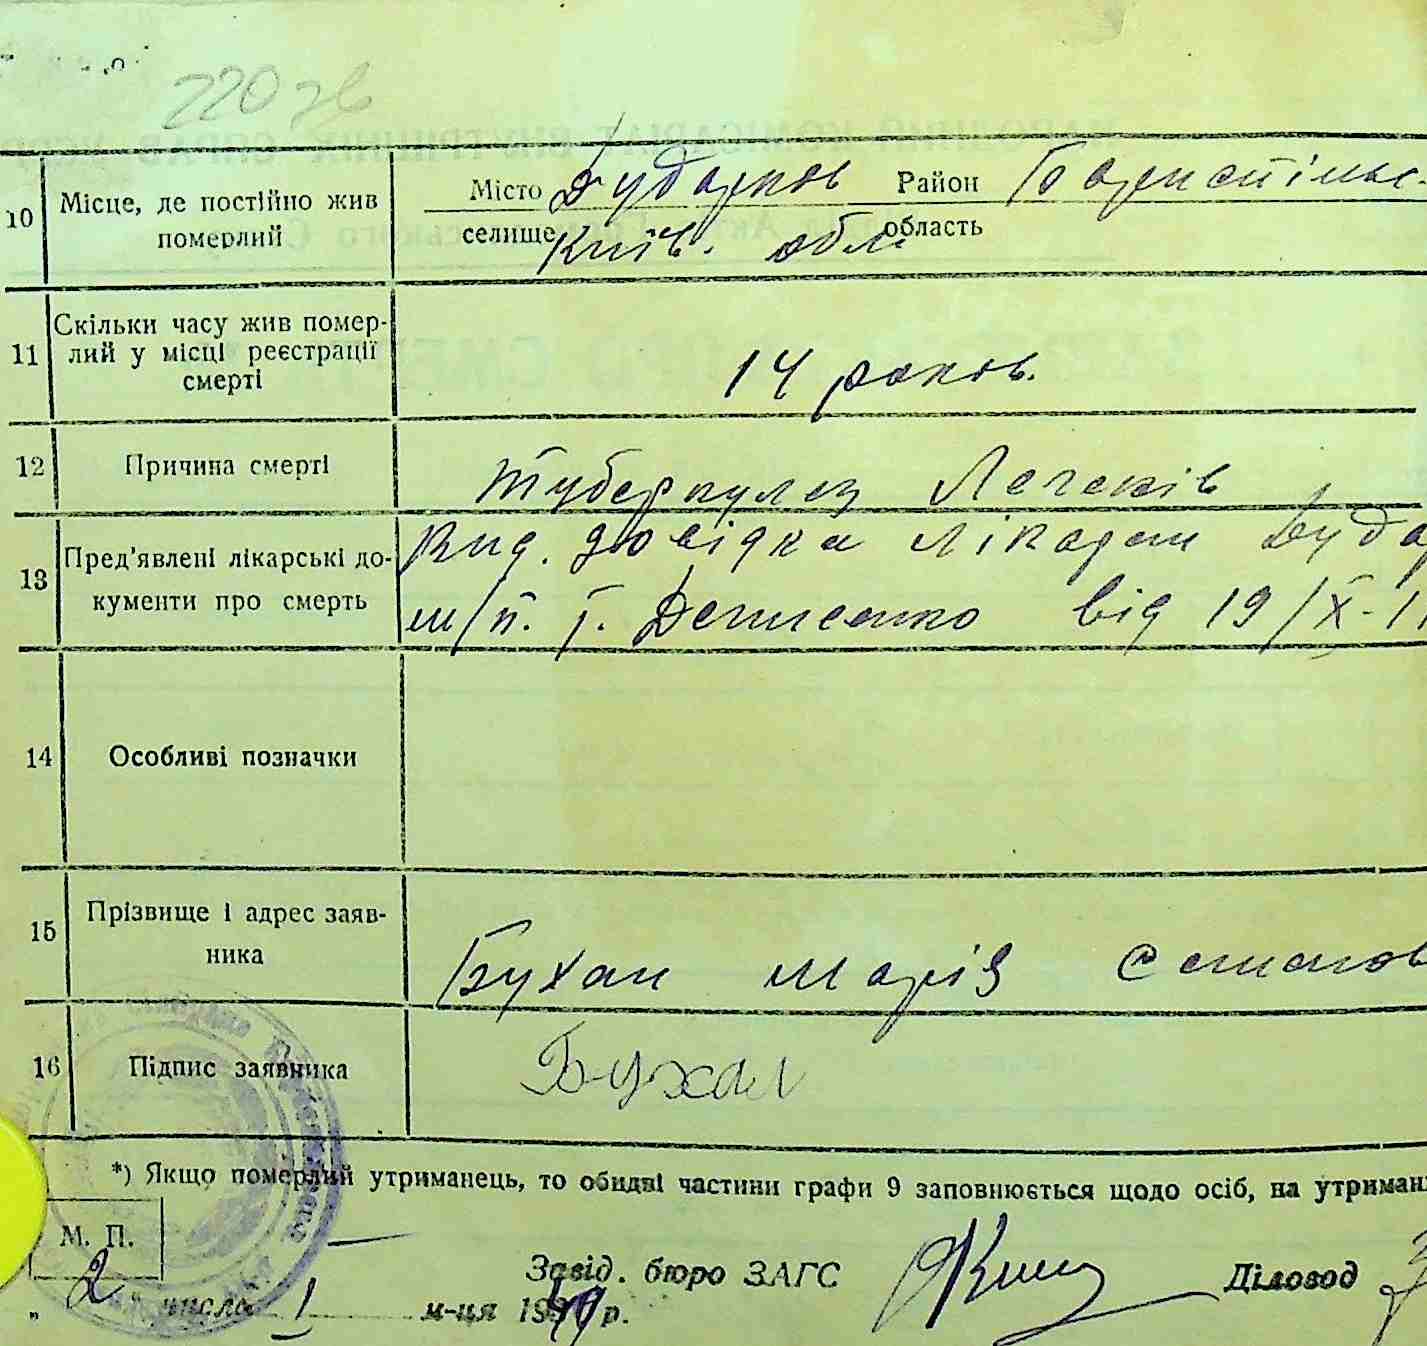 220 зв
10 Місце, де постійно жив Місто Дударков Район Бориспільс
померлий селище Київ. обл. область
Скільки часу жив помер-
11 лий у місці реєстрації 14 роков.
смерті
12 Причина смерті Туберкулез Легенів
13 Пред'явлені лікарські до- Вид. довідка лікарем Дудар
кументи про смерть м/п. т. Денисенко від 19/X-1
14 Особливі позначки
15 Прізвище і адрес заяв- Бухал марія семенов
ника
16 Підпис заявника Бухал
*) Якщо померлий утриманець, то обидві частини графи 9 заповнюється щодо осіб, на утриман
М. П.
Завід. бюро ЗАГС Діловод
„ 2 " числа 1 м-ця 19 р.